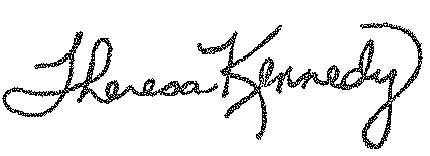 Theresa Kennedy